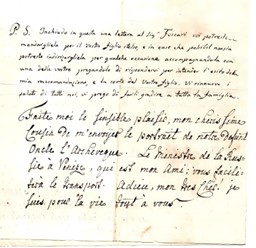 P. S. Inchiudo in questa una lettera al Sig.r voi potrete
mandargliela per il vostro figlio o in caso che
potrete indirizzargliela per qualche occasione accompagnandola con
una della vostra pregandolo di rispondervi per intender l'esito della
mia raccomandazione e la sorte del vostro figlio, vi rinnuovo i
saluti di tutti noi, vi prego di fargli gradire a tutta la famiglia.
Faite moi le sensible plaisir, mon cheris sime
Cousin de m'envoyer le portrait de notre Defunt
Oncle l'Archeveque. Le Ministre de la Rus
sie à Venise, que est mon Ami, vous facili
tera le transport. Adieu, mon tres Cher. je
suis pour la vie tout à vous